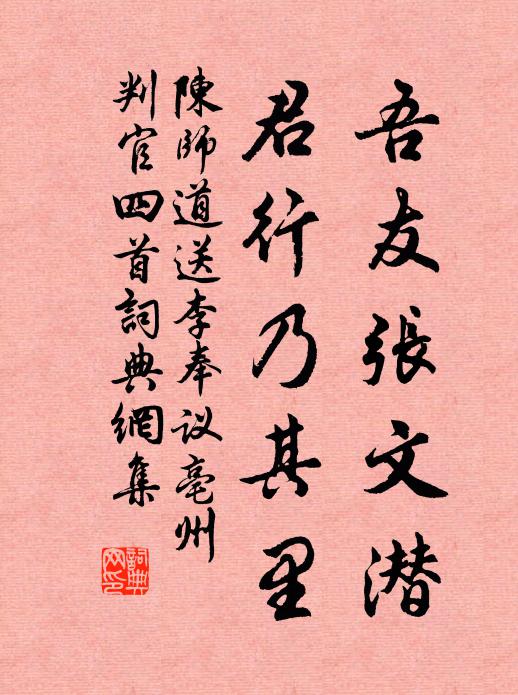 吾友張文潜
君行乃其里
陳師道送李奉议亳州
判官四首詞典網集
詞典
网印